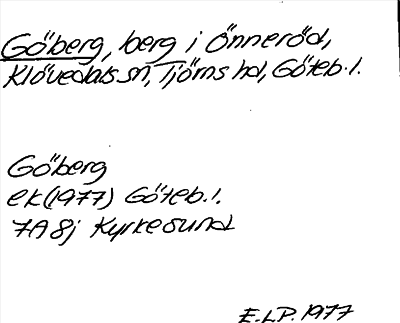 Göberg, berg i Önneröd,
Klövedals sn, Tjörns hd, Göteb. l.
Göberg
ek (1977) Göteb. l.
7A 8j Kyrkesund
E.L.P. 1977